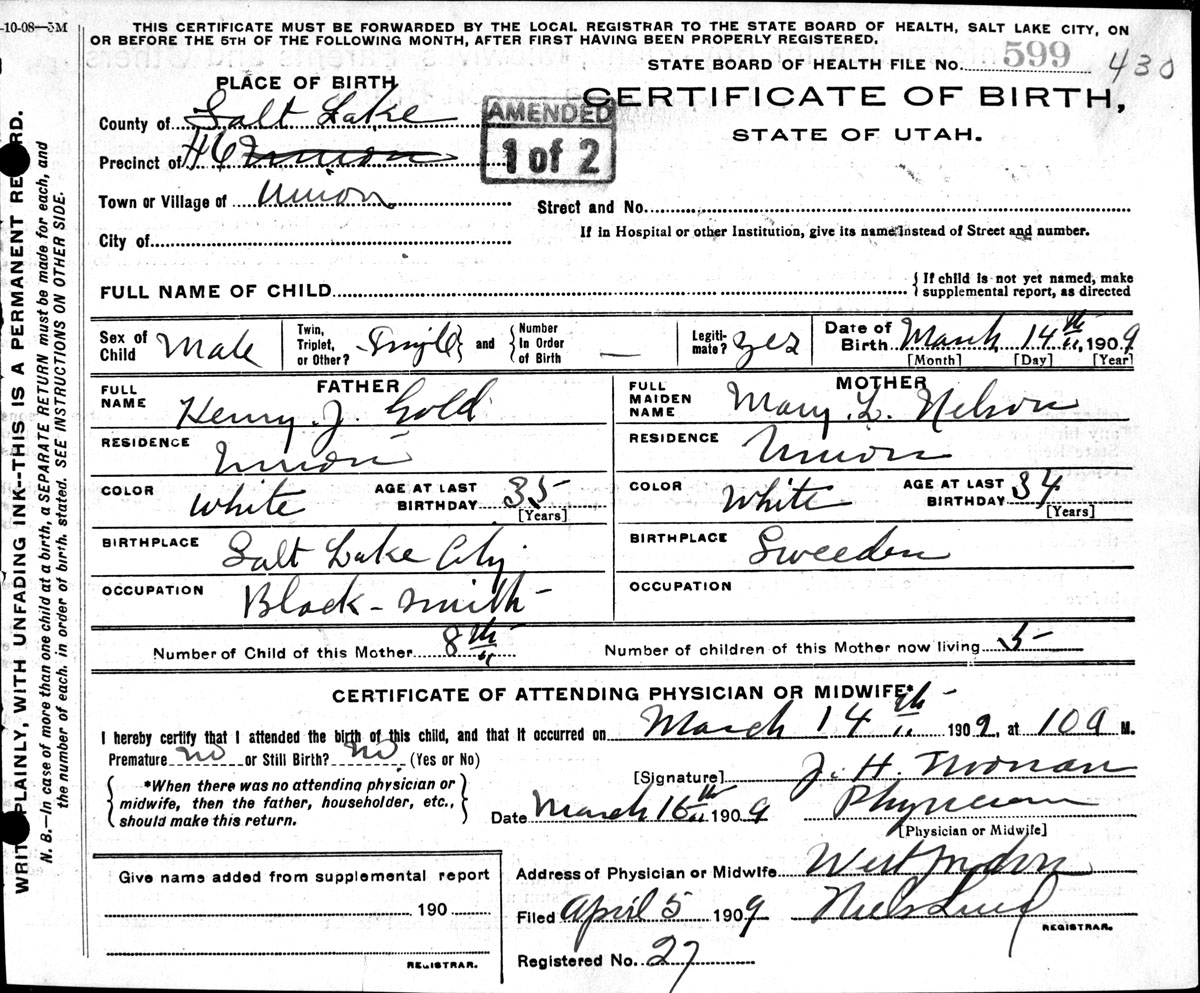 -10-08—5M
THIS CERTIFICATE MUST BE FORWARDED BY THE LOCAL REGISTRAR TO THE STATE BOARD OF HEALTH, SALT LAKE CITY, ON
OR BEFORE THE 5TH OF THE FOLLOWING MONTH, AFTER FIRST HAVING BEEN PROPERLY REGISTERED.
STATE BOARD OF HEALTH FILE No. 599 430
PLACE OF BIRTH
CERTIFICATE OF BIRTH,
STATE OF UTAH.
AMENDED
1 of 2
County of Salt Lake
Precinct of Union
Town or Village of Union
Street and No.
City of
If in Hospital or other Institution, give its name instead of Street and number.
FULL NAME OF CHILD
{If child is not yet named, make
supplemental report, as directed
Sex of Child Male
Twin, Triplet, or Other? Single } and { Number In Order of Birth —
Legiti-mate? yes
Date of Birth March 14th, 1909
[Month] [Day] [Year]
FATHER
FULL NAME Henry. J. Gold
RESIDENCE Union
COLOR White
AGE AT LAST BIRTHDAY 35
[Years]
BIRTHPLACE Salt Lake City
OCCUPATION Black-smith
MOTHER
FULL MAIDEN NAME Mary. L. Nelson
RESIDENCE Union
COLOR White
AGE AT LAST BIRTHDAY 34
[Years]
BIRTHPLACE Sweeden
OCCUPATION
Number of Child of this Mother 8th
Number of children of this Mother now living 5
CERTIFICATE OF ATTENDING PHYSICIAN OR MIDWIFE*
I hereby certify that I attended the birth of this child, and that it occurred on March 14th 1909, at 10 a M.
Premature no or Still Birth? no (Yes or No)
{*When there was no attending physician or
midwife, then the father, householder, etc.,
should make this return.}
[Signature] J. H. Noonan
Date March 16th 1909 Physician
[Physician or Midwife]
Give name added from supplemental report
190
REGISTRAR.
Address of Physician or Midwife West Jordan
Filed April 5 1909 Niels Lind
REGISTRAR.
Registered No. 27
WRITE PLAINLY, WITH UNFADING INK--THIS IS A PERMANENT RECORD.
N. B.—In case of more than one child at a birth, a SEPARATE RETURN must be made for each, and
the number of each, in order of birth, stated. SEE INSTRUCTIONS ON OTHER SIDE.